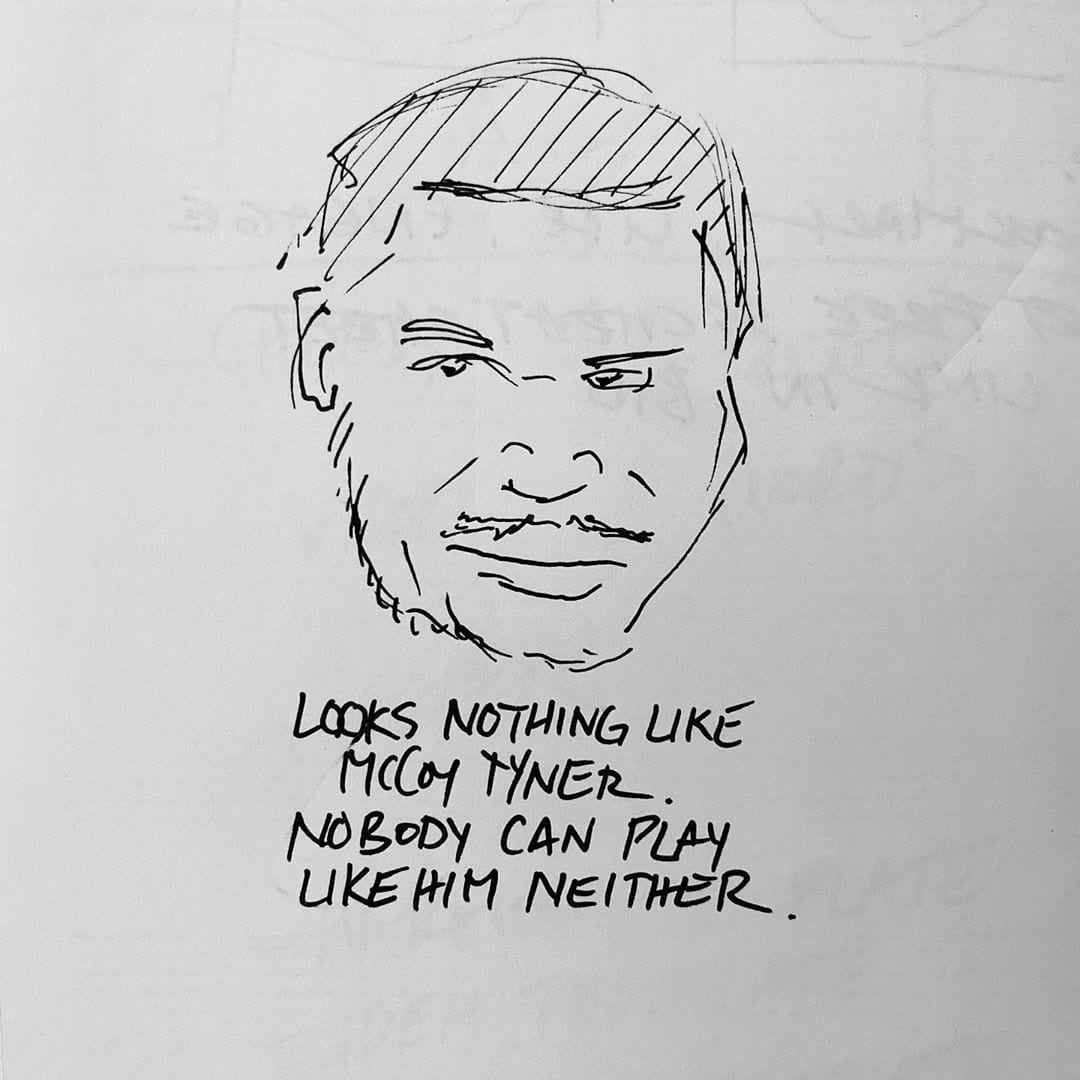 LOOKS NOTHING LIKE
McCoy TYNER.
NOBODY CAN PLAY
LIKE HIM NEITHER.